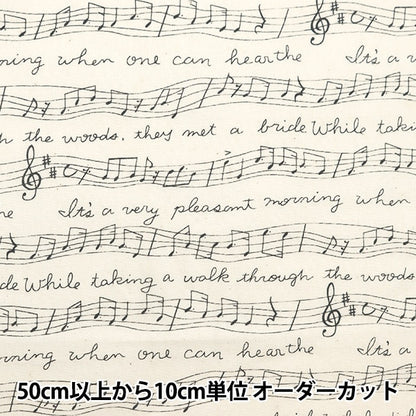 rning when one can hearthe It's a v
h the woods. they met a bride While taki
ne It's a very pleasant morning when
de While taking a walk through the woods
rning when one can hearthe It's a
50cm以上から10cm単位 オーダーカット